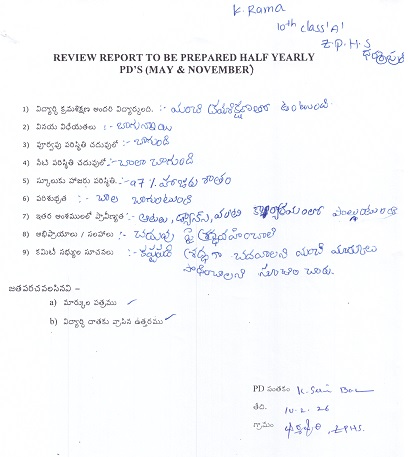 K. Rama
10th class 'A'
Z.P.H.S
REVIEW REPORT TO BE PREPARED HALF YEARLY
PD'S (MAY & NOVEMBER)
1) విద్యార్థి క్రమశిక్షణ అందరి విద్యార్థులది. :- మంచి క్రమశిక్షణతో ఉంటుంది
2) వినయ విధేయతలు :- బాగున్నాయి
3) పూర్వపు పరిస్థితి చదువులో :- బాగుంది
4) నేటి పరిస్థితి చదువులో:- చాలా బాగుంది
5) స్కూలుకు హాజరు పరిస్థితి.:- 97 % హాజరు శాతం
6) పరిశుభ్రత :- చాల బాగుంటుంది
7) ఇతర అంశములలో ప్రావీణ్యత :- ఆటలు, డ్యాన్స్, వంటి
8) అభిప్రాయాలు / సలహాలు :- చదువు పై శ్రద్ధ వహించాలి
9) కమిటీ సభ్యుల సూచనలు :- కష్టపడి శ్రద్ధగా చదవాలని మంచి మార్కులు
సాధించాలని
జతపరచవలసినవి –
a) మార్కుల పత్రము ✓
b) విద్యార్థి దాతకు వ్రాసిన ఉత్తరము ✓
PD సంతకం K. Sai
తేది. 10-2-26
గ్రామం ZPHS.